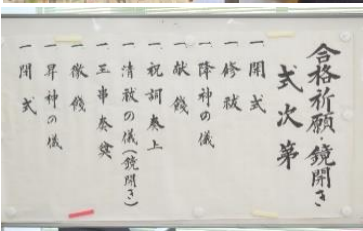 合格祈願・鏡開き
式次第
一 開式
一 修祓
一 降神の儀
一 献饌
一 祝詞奏上
一 清祓の儀(鏡開き)
一 玉串奉奠
一 徹饌
一 昇神の儀
一 閉式